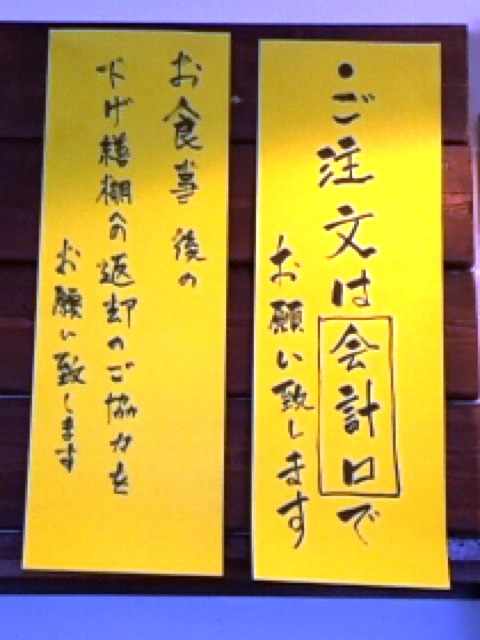 ・ご注文は会計口で
お願い致します
お食事後の
下げ膳棚への返却のご協力を
お願い致します